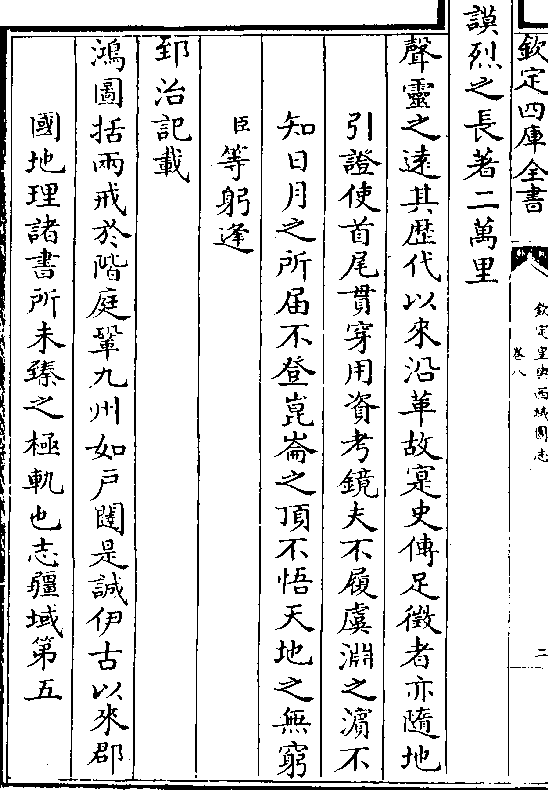 欽定四庫全書
欽定皇輿西域圖志
卷八
二
謨烈之長著二萬里
聲靈之遠其歷代以來沿革故寔史傳足徵者亦隨地
引證使首尾貫穿用資考鏡夫不履虞淵之濵不
知日月之所届不登崑崙之頂不悟天地之無窮
臣等躬逢
郅治記載
鴻圖括兩戒於階庭鞏九州如戶闥是誠伊古以來郡
國地理諸書所未臻之極軌也志疆域第五